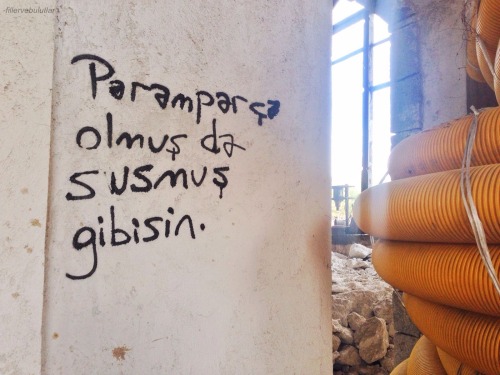 -fillervebulutlar-
Paramparça
olmuş da
susmuş
gibisin.